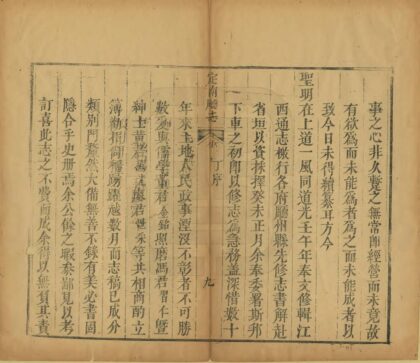 事之心非久覽之無常卽經營而未竟故
有欲為而未能者為之而未能成者以
致今日未得續纂耳方今
聖明在上道一風同道光壬午年奏文修輯江
西通志檄行各府廳州縣先修志書解赴
省垣以資採擇癸未正月余奉委署斯邦
下車之初卽以修志為急務蓋深惜數十
定南廳志
丁序
九
年來土地人民政事湮沒不彰者不可勝
數爰與儒學馮君暨
紳士黃等共相商酌立
簿勸捐踴躍越數月而志稿已成分
類別門燦然大備無音不錄有美必書固
隱合乎史册焉余公餘之暇參鄙見以考
訂喜此志之不費而成余得以無負其責